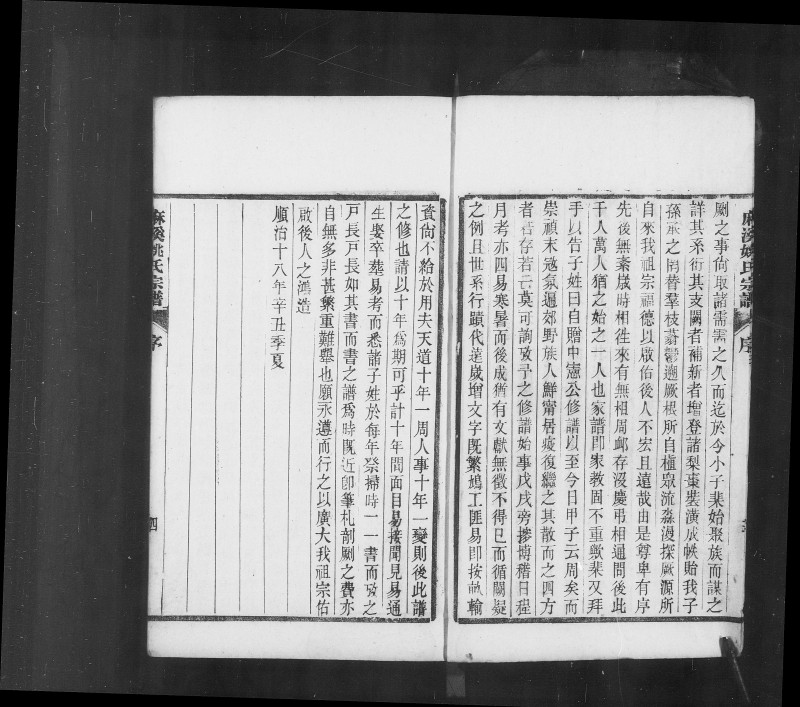 劂之事尙取諸需需之久而迄於今小子棐始聚族而謀之
詳其系衍其支闕者補新者增登諸梨棗裝潢成帙貽我子
孫最之閒替羣枝蓊鬱遡厥根所自植眾流淼漫探厥源所
自來我祖宗福德以啟佑後人不宏且遠哉由是尊卑有序
先後無紊歲時相徃來有無相周卹存沒慶弔相通問後此
千人萬人猶之始之一人也家譜卽家教固不重歟棐又拜
手以告子姓曰自贈中憲公修譜以至今日甲子云周矣而
崇禎末寇氛逼郊野族人鮮甯居疫復繼之其散而之四方
者 存若 莫可詢攷予之修譜始事戊戌旁摻博稽日程
月考亦四易寒暑而後成猶有文獻無徵不得已而循闕疑
之例且世系行蹟代遠歲增文字旣繁鳩工匪易卽按畝輸
資尙不給於用夫天道十年一周人事十年一變則後此譜
之修也請以十年爲期可乎計十年間面目易接聞見易通
生娶卒塟易考而悉諸子姓於每年祭掃時一一書而攷之
戸長戸長如其書而書之譜爲時旣近卽筆札剞劂之費亦
自無多非甚繁重難舉也願永遵而行之以廣大我祖宗佑
啟後人之鴻造
順治十八年辛丑季夏
麻溪姚氏宗譜
序
四
麻溪姚氏宗譜
序